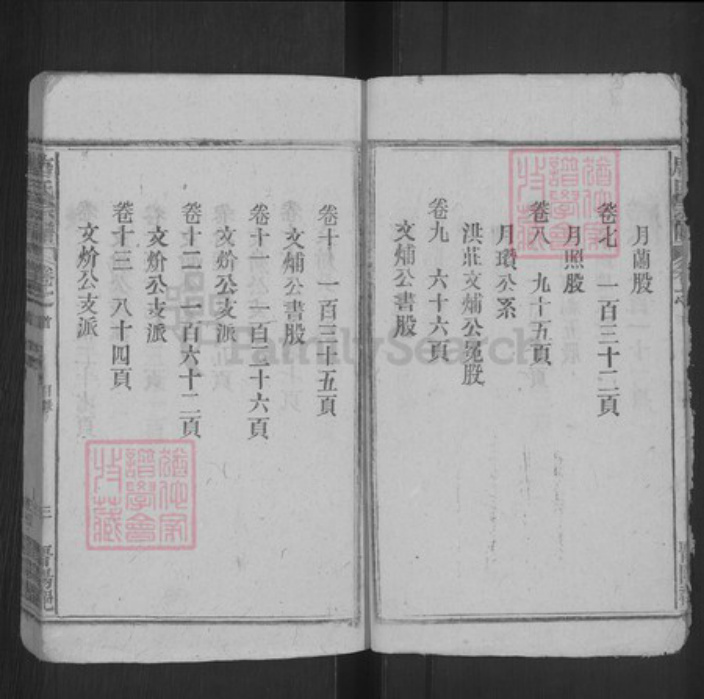 月蘭股
卷七 一百三十二頁
月照股
卷八 九十五頁
月瓚公系
洪莊文煵公冕股
卷九 六十六頁
文煵公書股
卷十 一百三十五頁
文煵公書股
卷十一 一百二十六頁
文炌公支派
卷十二 一百六十二頁
文炌公支派
卷十三 八十四頁
文炌公支派
首
三
FamilySearch